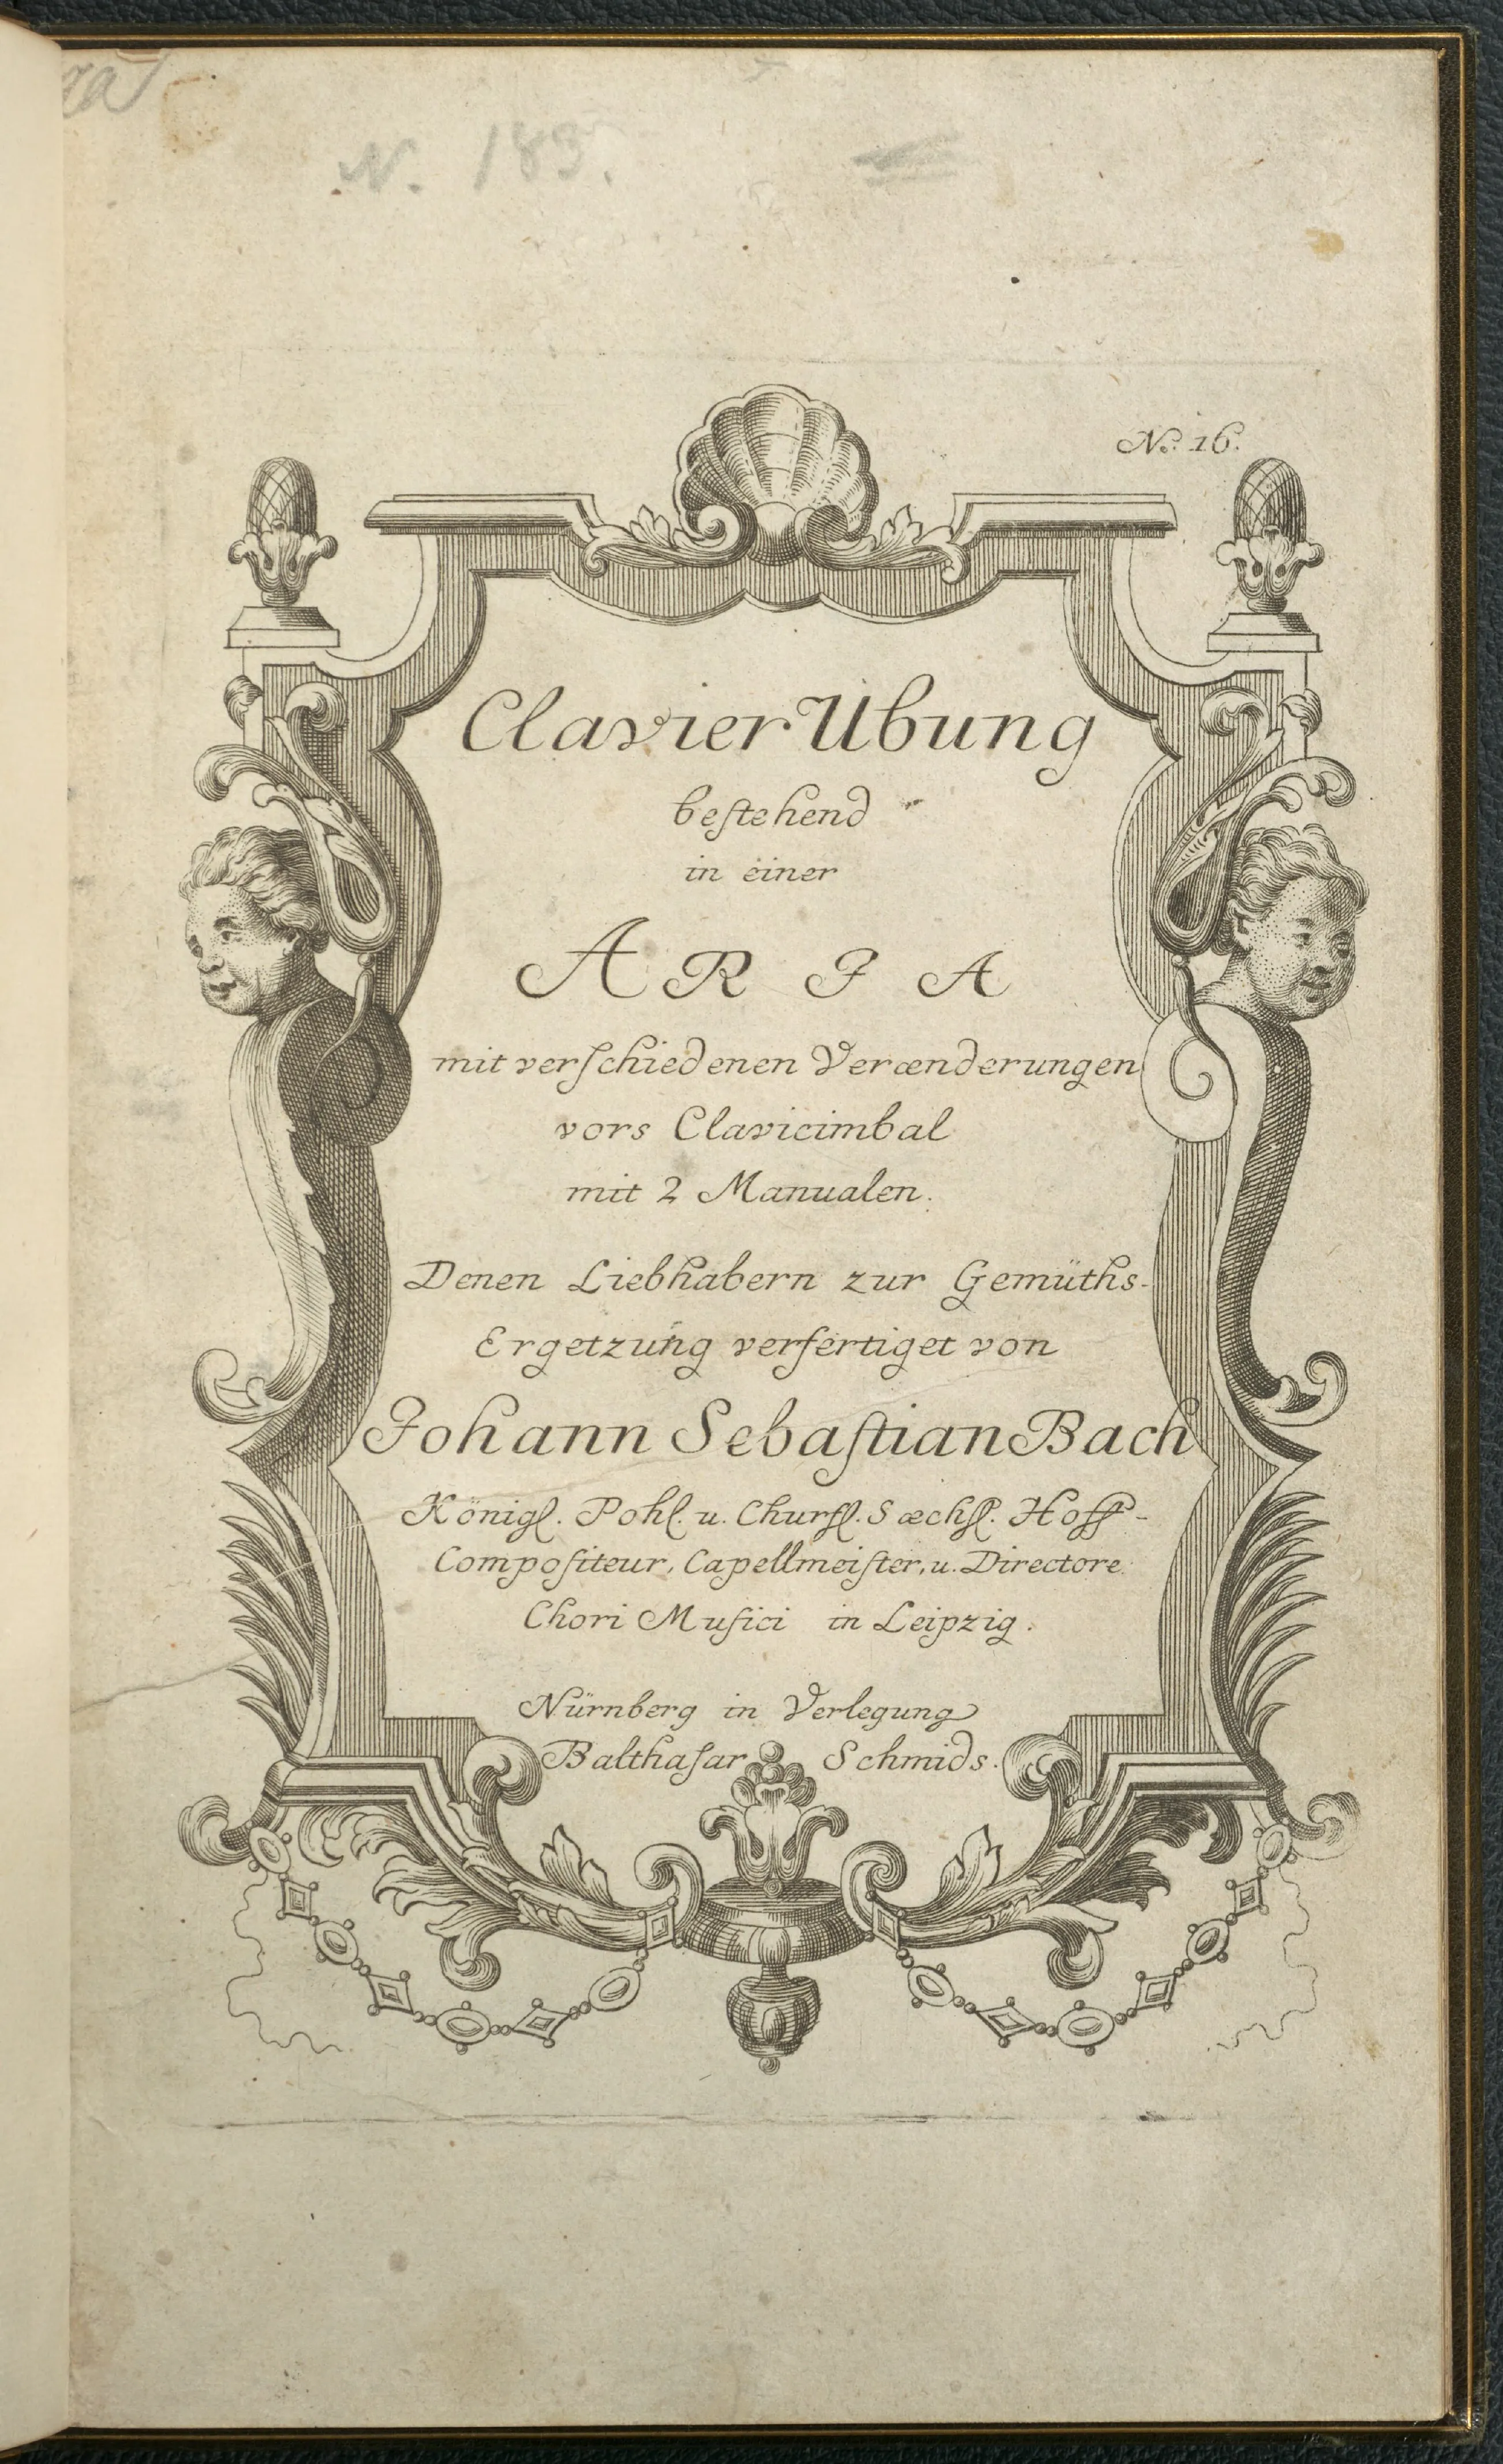 N. 183.
No. 16.
Clavier Ubung
bestehend
in einer
ARIA
mit verschiedenen Verænderungen
vors Clavicimbal
mit 2 Manualen.
Denen Liebhabern zur Gemüths-
Ergetzung verfertiget von
Johann Sebastian Bach
Königl. Pohl. u. Churfl. Sæchsl. Hoff-
Compositeur, Capellmeister, u. Directore
Chori Musici in Leipzig.
Nürnberg in Verlegung
Balthasar Schmids.